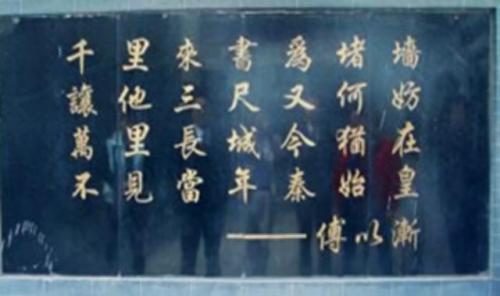 千里來書為堵墻
讓他三尺又何妨
萬里長城今猶在
不見當年秦始皇
——傅以漸